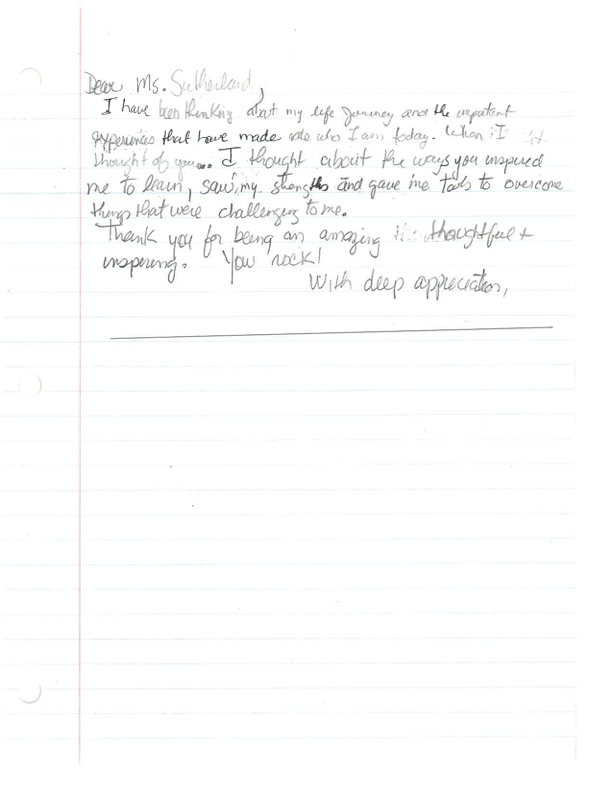 Dear Ms. Sutherland,
I have been thinking about my life journey and the important
experiences that have made me who I am today. When I
thought of you... I thought about the ways you inspired
me to learn, saw my strengths and gave me tools to overcome
things that were challenging to me.
Thank you for being an amazing thoughtful +
inspering. You rock!
With deep appreciation,